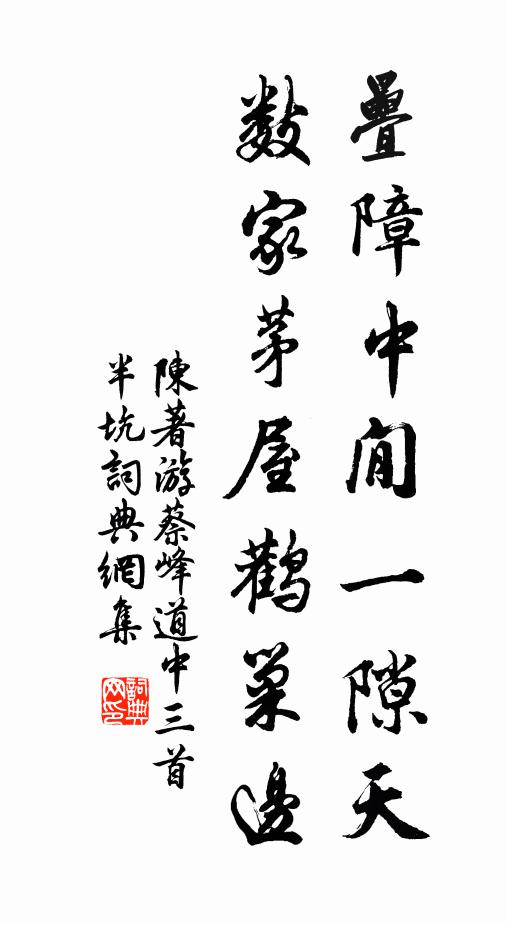 疊障中間一隙天
數家茅屋鸛巢邊
陳著游蔡峰道中三首
半坑詞典網集
詞典網印